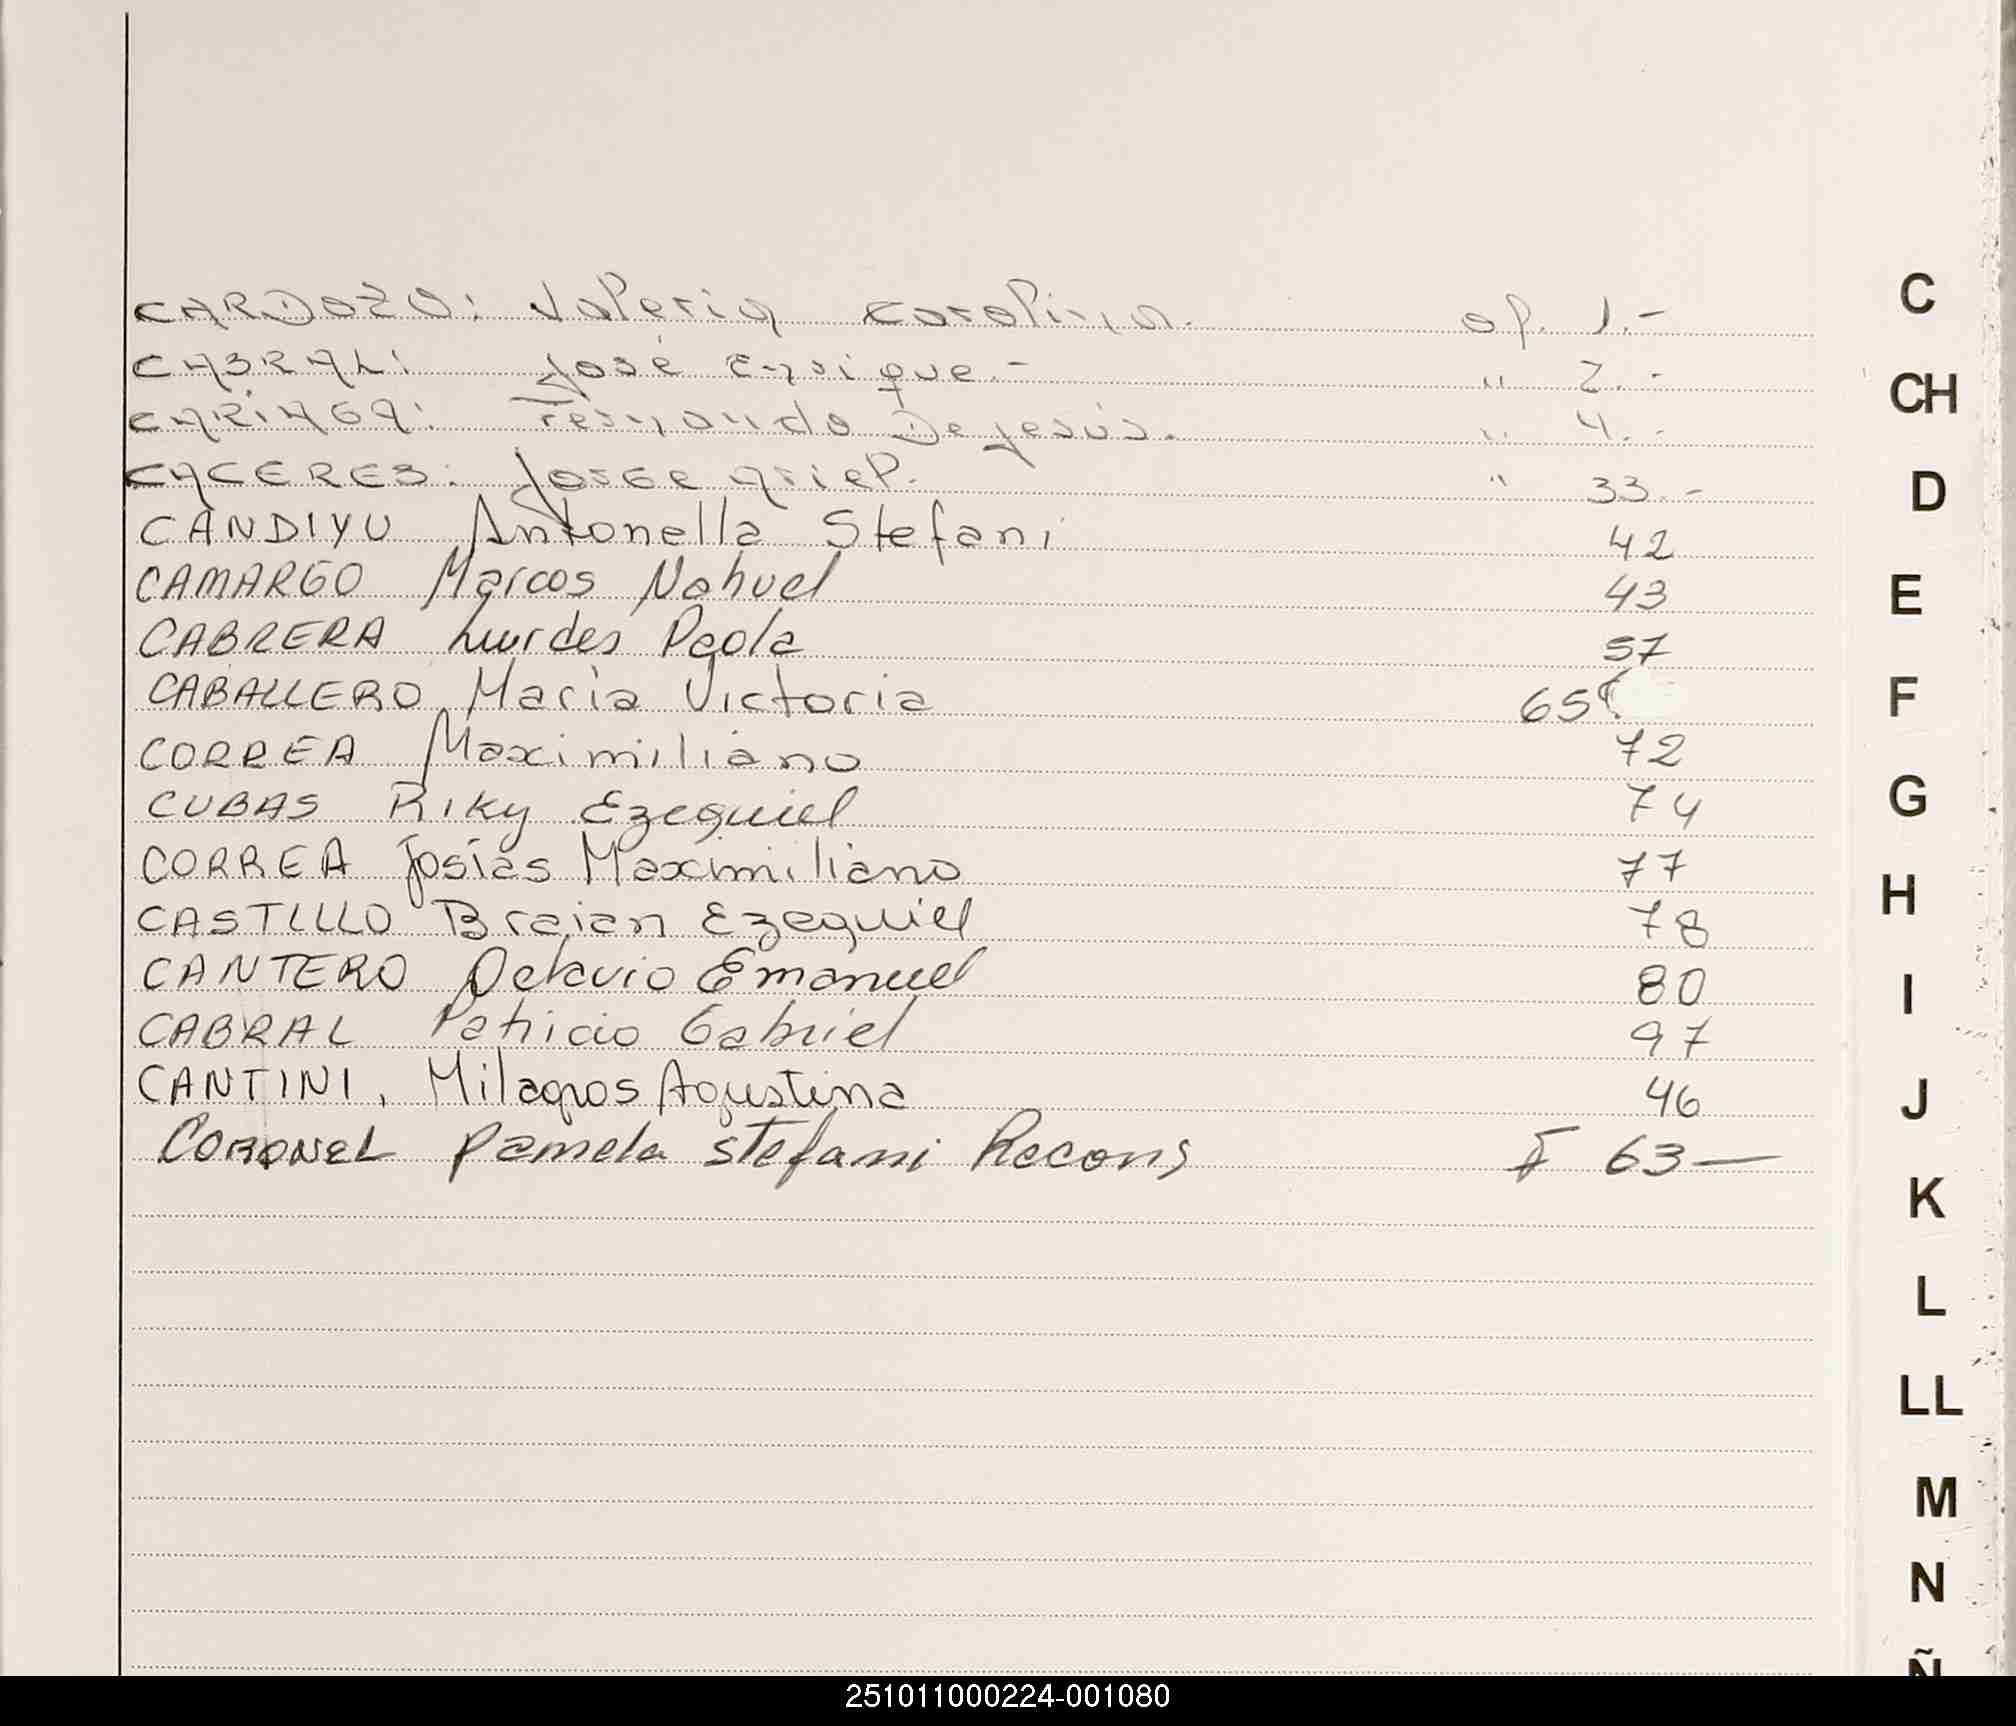 CARDOZO: Valeria Carolina. of. 1.-
CABRAL: José Enrique.- " 2.-
CARINAGA: Fernando De Jesús. " 4.-
CACERES: Jorge Ariel. " 33.-
CANDIYU Antonella Stefani 42
CAMARGO Marcos Nahuel 43
CABRERA Lurdes Paola 57
CABALLERO Maria Victoria 65
CORREA Maximiliano 72
CUBAS Riky Ezequiel 74
CORREA Josías Maximiliano 77
CASTILLO Braian Ezequiel 78
CANTERO Octavio Emanuel 80
CABRAL Patricio Gabriel 97
CANTINI, Milagros Agustina 46
CORONEL Pamela Stefani Recons F 63—
C
CH
D
E
F
G
H
I
J
K
L
LL
M
N
Ñ
251011000224-001080